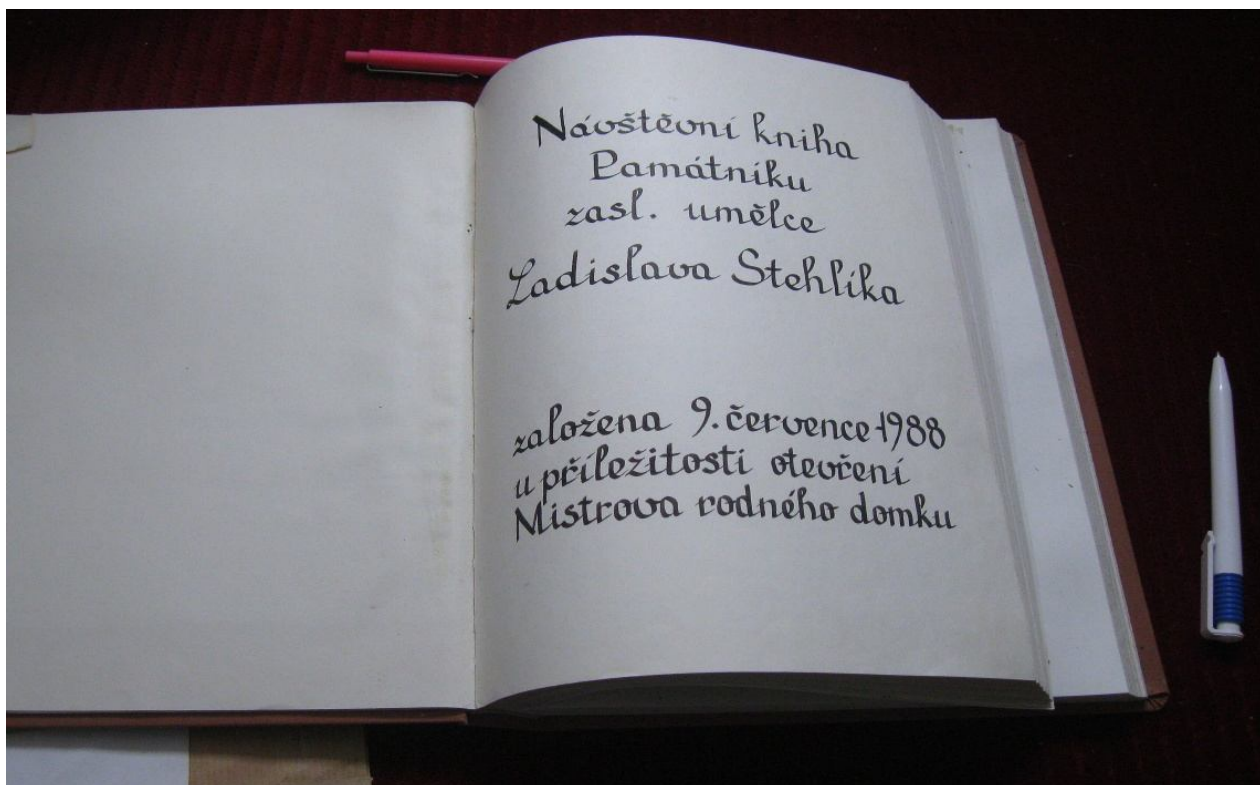 Návštěvní kniha
Památníku
zasl. umělce
Ladislava Stehlíka
založena 9. července 1988
u příležitosti otevření
Mistrova rodného domku